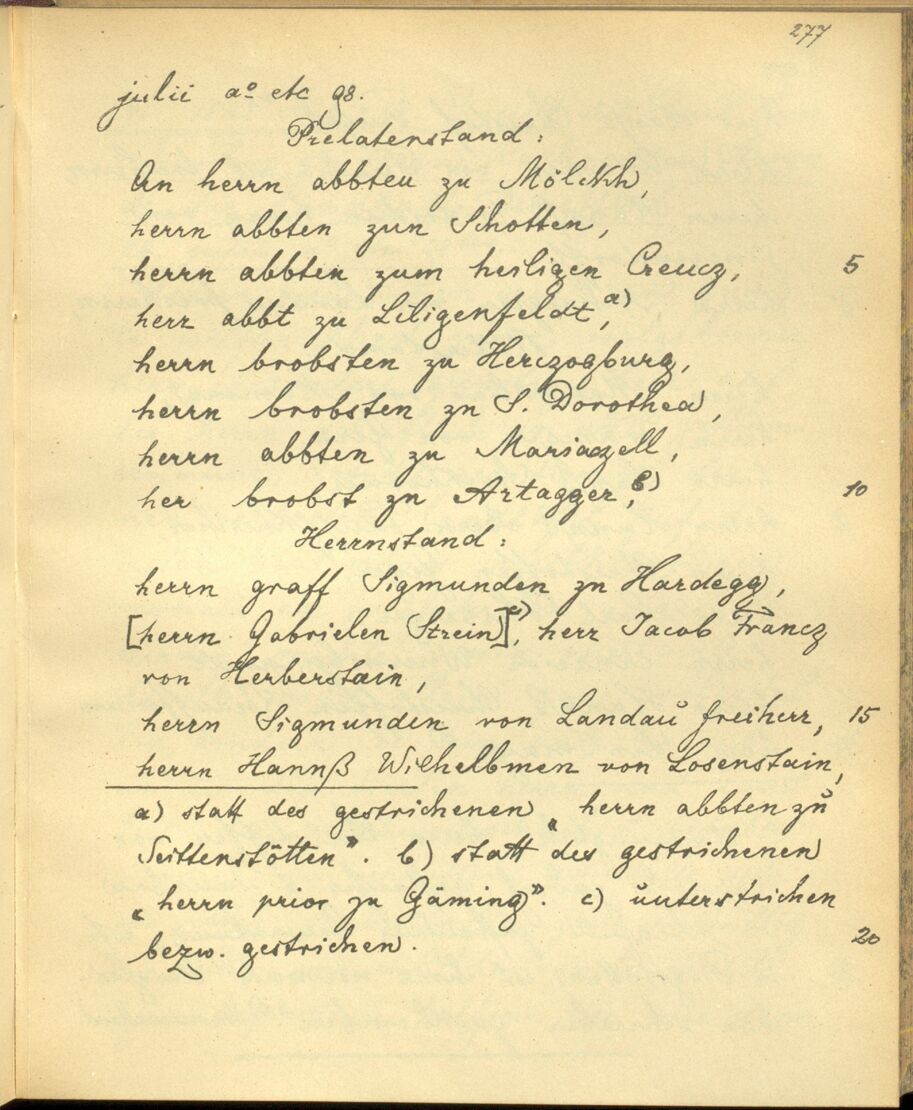 277
julii aº etc 98.
Prelatenstand:
An herrn abbten zu Mölckh,
herrn abbten zun Schotten,
herrn abbten zum heiligen Creucz, 5
herr abbt zu Liligenfeldt,a)
herrn brobsten zu Herczogburg,
herrn brobsten zu S. Dorothea,
herrn abbten zu Mariaczell,
her brobst zu Artagger,b) 10
Herrnstand:
herrn graff Sigmunden zu Hardegg,
[herrn Gabrielen Strein]c), herr Jacob Francz
von Herberstain,
herrn Sigmunden von Landau freiherr, 15
herrn Hannß Wilhelbmen von Losenstain,
a) statt des gestrichenen „herrn abbten zu
Seittenstötten”. b) statt des gestrichenen
„herrn prior zu Gäming”. c) unterstrichen
bezw. gestrichen. 20